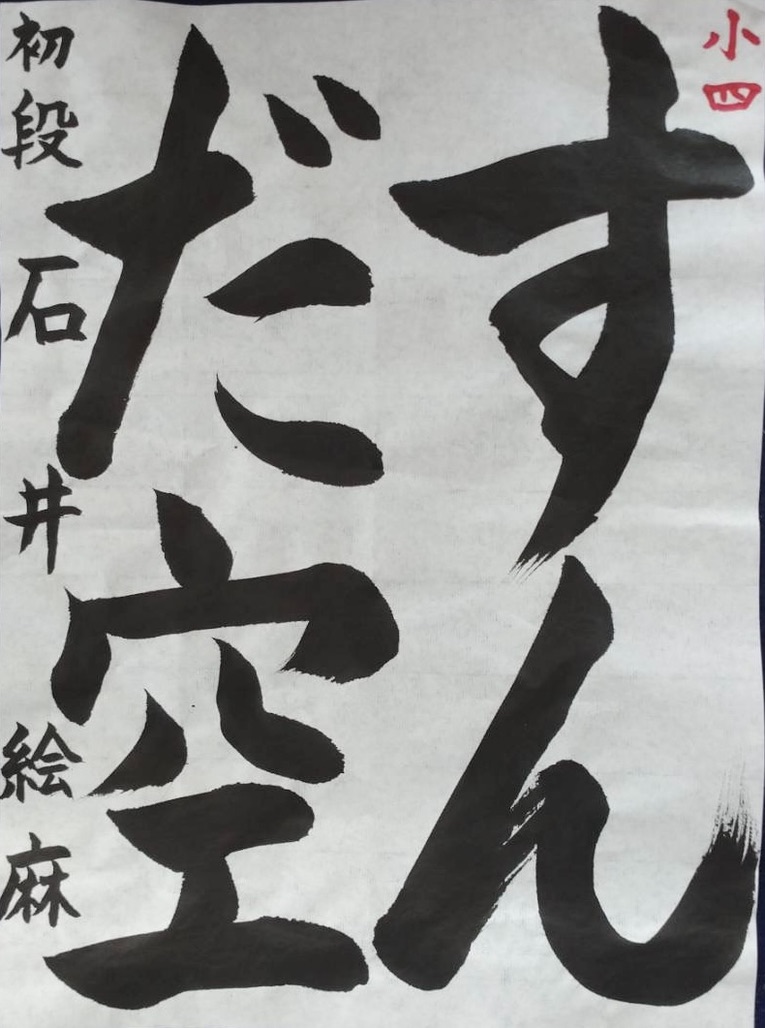 小四
すん
だ空
初段 石井 絵麻